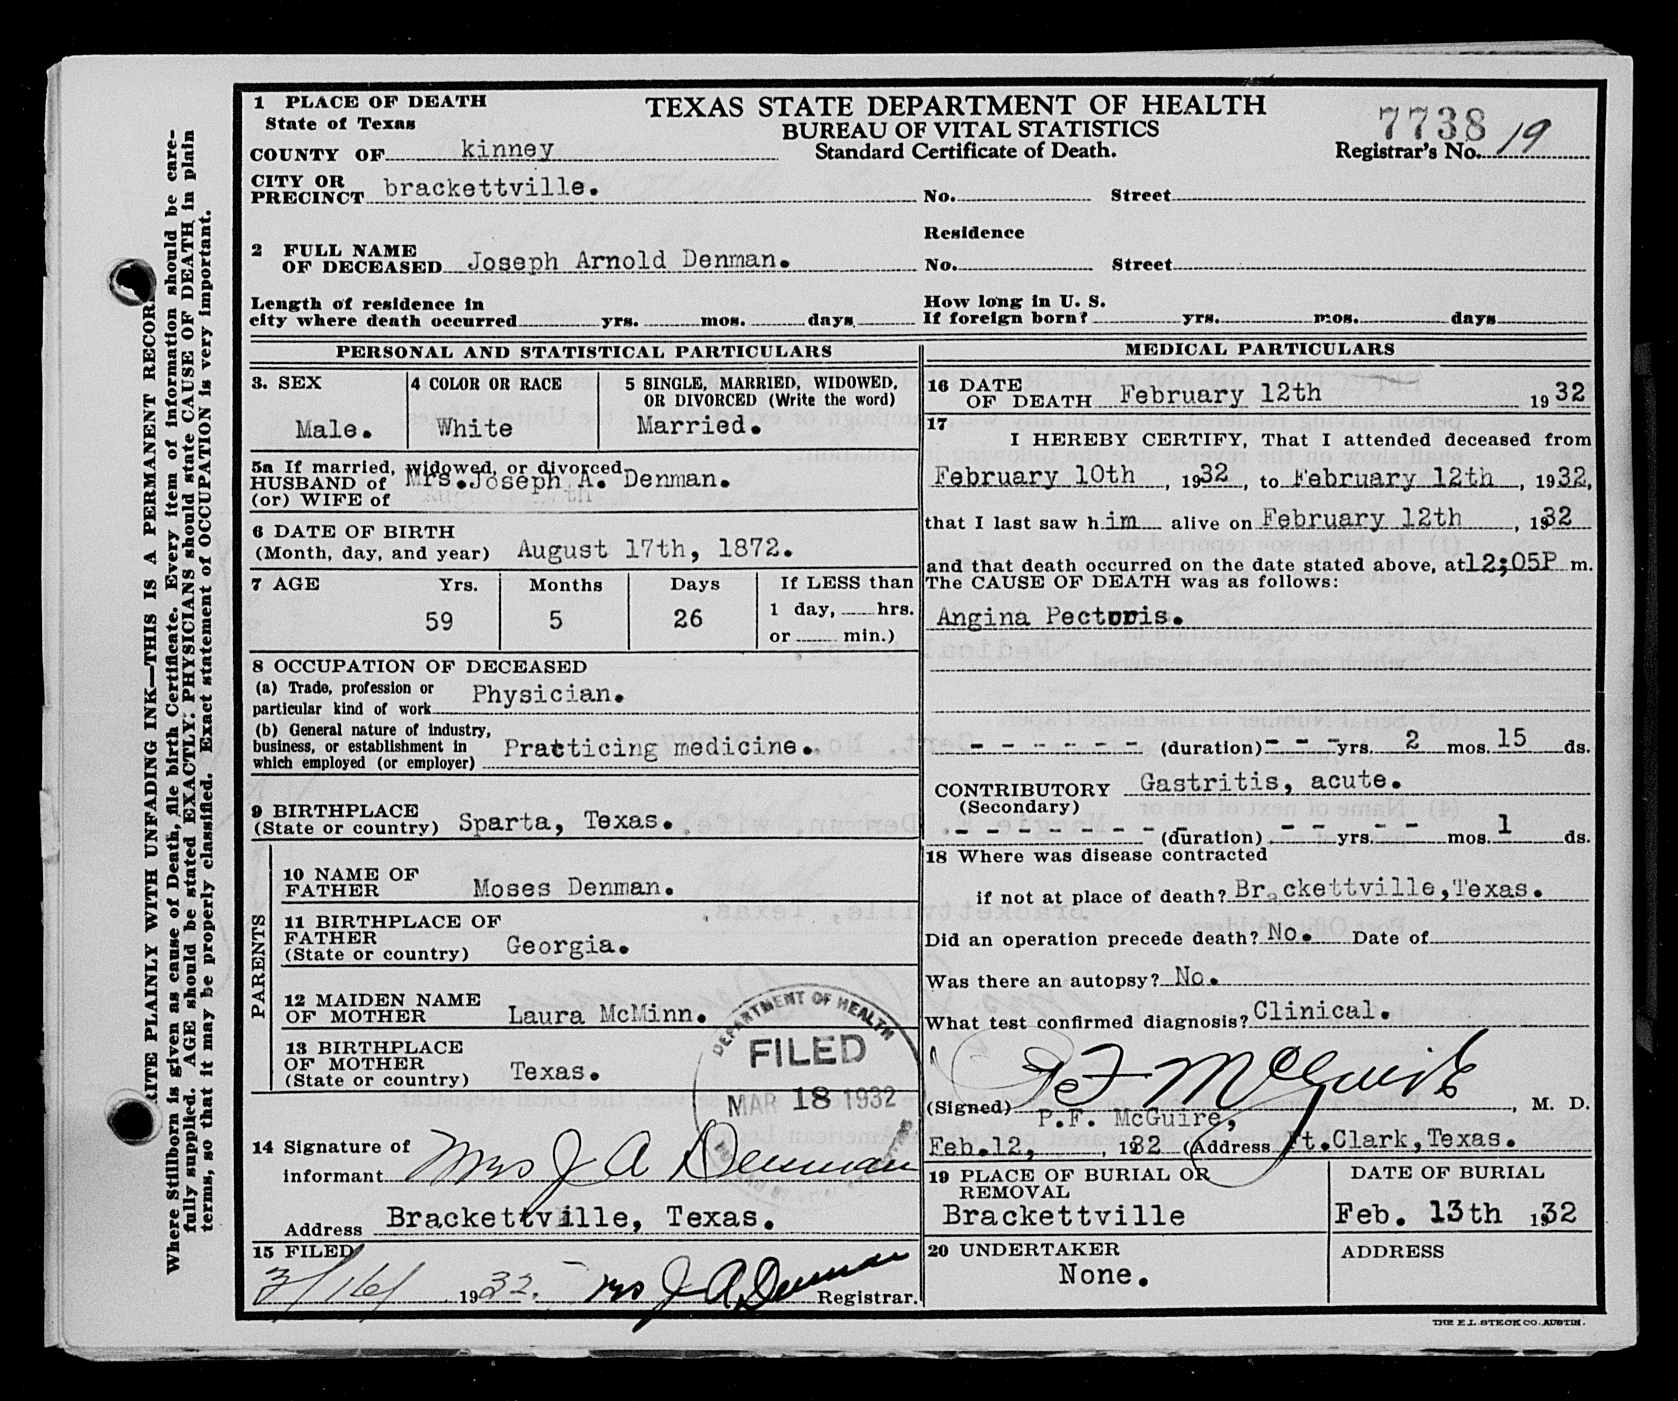 WRITE PLAINLY WITH UNFADING INK—THIS IS A PERMANENT RECORD
Where Stillborn is given as cause of Death, file birth Certificate. Every item of information should be care-
fully supplied. AGE should be stated EXACTLY. PHYSICIANS should state CAUSE OF DEATH in plain
terms, so that it may be properly classified. Exact statement of OCCUPATION is very important.
TEXAS STATE DEPARTMENT OF HEALTH
BUREAU OF VITAL STATISTICS
Standard Certificate of Death.
7738
Registrar's No. 19
1 PLACE OF DEATH
State of Texas
COUNTY OF kinney
CITY OR
PRECINCT brackettville.
No. Street
Residence
2 FULL NAME
OF DECEASED Joseph Arnold Denman.
No. Street
Length of residence in
city where death occurred yrs. mos. days
How long in U. S.
If foreign born? yrs. mos. days
PERSONAL AND STATISTICAL PARTICULARS
3. SEX
Male.
4 COLOR OR RACE
White
5 SINGLE, MARRIED, WIDOWED,
OR DIVORCED (Write the word)
Married.
5a If married, widowed, or divorced
HUSBAND of Mrs.Joseph A. Denman.
(or) WIFE of
6 DATE OF BIRTH
(Month, day, and year) August 17th, 1872.
7 AGE Yrs. Months Days If LESS than
59 5 26 1 day, hrs.
or min.)
8 OCCUPATION OF DECEASED
(a) Trade, profession or
particular kind of work Physician.
(b) General nature of industry,
business, or establishment in
which employed (or employer) Practicing medicine.
9 BIRTHPLACE
(State or country) Sparta, Texas.
PARENTS
10 NAME OF
FATHER Moses Denman.
11 BIRTHPLACE OF
FATHER
(State or country) Georgia.
12 MAIDEN NAME
OF MOTHER Laura McMinn.
13 BIRTHPLACE
OF MOTHER
(State or country) Texas.
DEPARTMENT OF HEALTH
FILED
MAR 18 1932
14 Signature of
informant Mrs J A Denman
Address Brackettville, Texas.
15 FILED
3/16/ 1932. Mrs J A Denman Registrar.
MEDICAL PARTICULARS
16 DATE
OF DEATH February 12th 1932
17
I HEREBY CERTIFY, That I attended deceased from
February 10th, 1932, to February 12th, 1932,
that I last saw him alive on February 12th, 1932
and that death occurred on the date stated above, at 12;05P m.
The CAUSE OF DEATH was as follows:
Angina Pectoris.
- - - - - - (duration) - - - yrs. 2 mos. 15 ds.
CONTRIBUTORY Gastritis, acute.
(Secondary)
- - - - - - - - (duration) - - yrs. - - mos. 1 ds.
18 Where was disease contracted
if not at place of death? Brackettville,Texas.
Did an operation precede death? No. Date of
Was there an autopsy? No.
What test confirmed diagnosis? Clinical.
(Signed) P F McGuire, M. D.
P.F. McGuire,
Feb.12, 1932 (Address Ft.Clark,Texas.
19 PLACE OF BURIAL OR
REMOVAL
Brackettville
DATE OF BURIAL
Feb. 13th 1932
20 UNDERTAKER
None.
ADDRESS
THE E.L. STECK CO. AUSTIN.